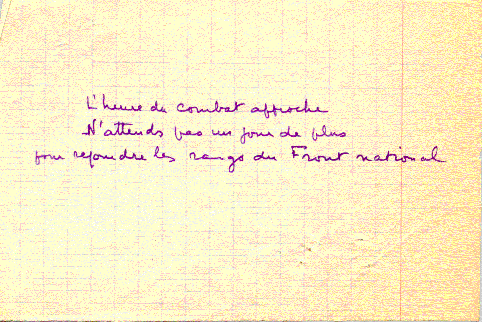 L'heure du combat approche
N'attends pas un jour de plus
pour rejoindre les rangs du Front national